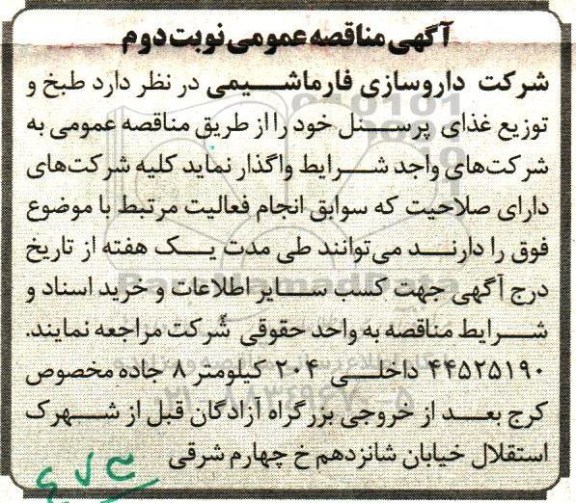 آگهی مناقصه عمومی نوبت دوم
شرکت داروسازی فارماشیمی در نظر دارد طبخ و
توزیع غذای پرسنل خود را از طریق مناقصه عمومی به
شرکت‌های واجد شرایط واگذار نماید کلیه شرکت‌های
دارای صلاحیت که سوابق انجام فعالیت مرتبط با موضوع
فوق را دارند می‌توانند طی مدت یک هفته از تاریخ
درج آگهی جهت کسب سایر اطلاعات و خرید اسناد و
شرایط مناقصه به واحد حقوقی شرکت مراجعه نمایند.
۴۴۵۲۵۱۹۰ داخلی ۲۰۴ کیلومتر ۸ جاده مخصوص
کرج بعد از خروجی بزرگراه آزادگان قبل از شهرک
استقلال خیابان شانزدهم خ چهارم شرقی